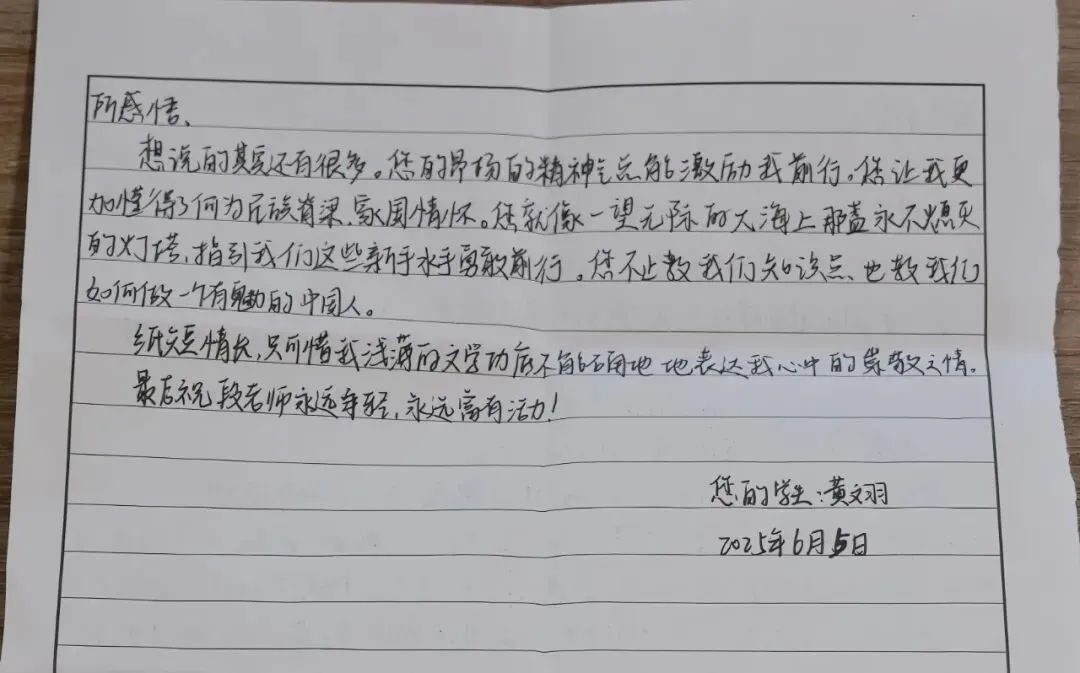 所感悟、
想说的其实还有很多。您的昂扬的精神气总能激励我前行。您让我更
加懂得了何为民族脊梁、家国情怀。您就像一望无际的大海上那盏永不熄灭
的灯塔，指引我们这些新手水手勇敢前行。您不止教我们知识点、也教我们
如何做一个有魅力的中国人。
纸短情长，只可惜我浅薄的文学功底不能准确地表达我心中的崇敬之情。
最后祝段老师永远年轻，永远富有活力！
您的学生：黄文羽
2025年6月5日